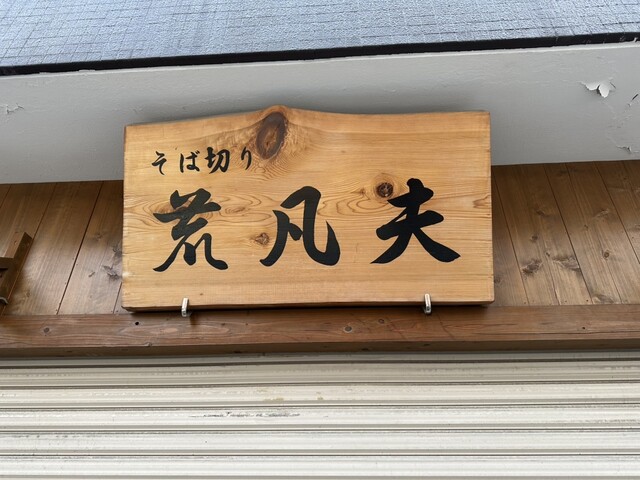 そば切り
荒凡夫